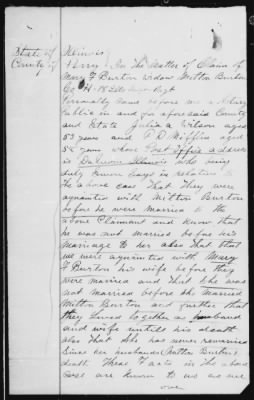 State of Illinois
County of Perry In the Matter of Claim of
Mary F Burton widow Milton Burton
Co H. 18 Ills Regt
Personally Came before me a Notary
Public in and for aforesaid County
and State Julia a Wilson aged
53 years and P. D. Mifflin aged
52 years whose Post Office address
is Illinois who being
duly sworn says in relation to
the above case That they were
aquainted with Milton Burton
before he were married to the
above Claimant and know that
he was not married before his
Marriage to her also that that
we were aquainted with Mary
F Burton his wife before they
were married and that she was
not married before she married
Milton Burton and further that
they lived together as husband
and wife untill his death
also that she has never remarried
Since her husbands Milton Burtons
death These Facts in the above
case are known to us as we
were